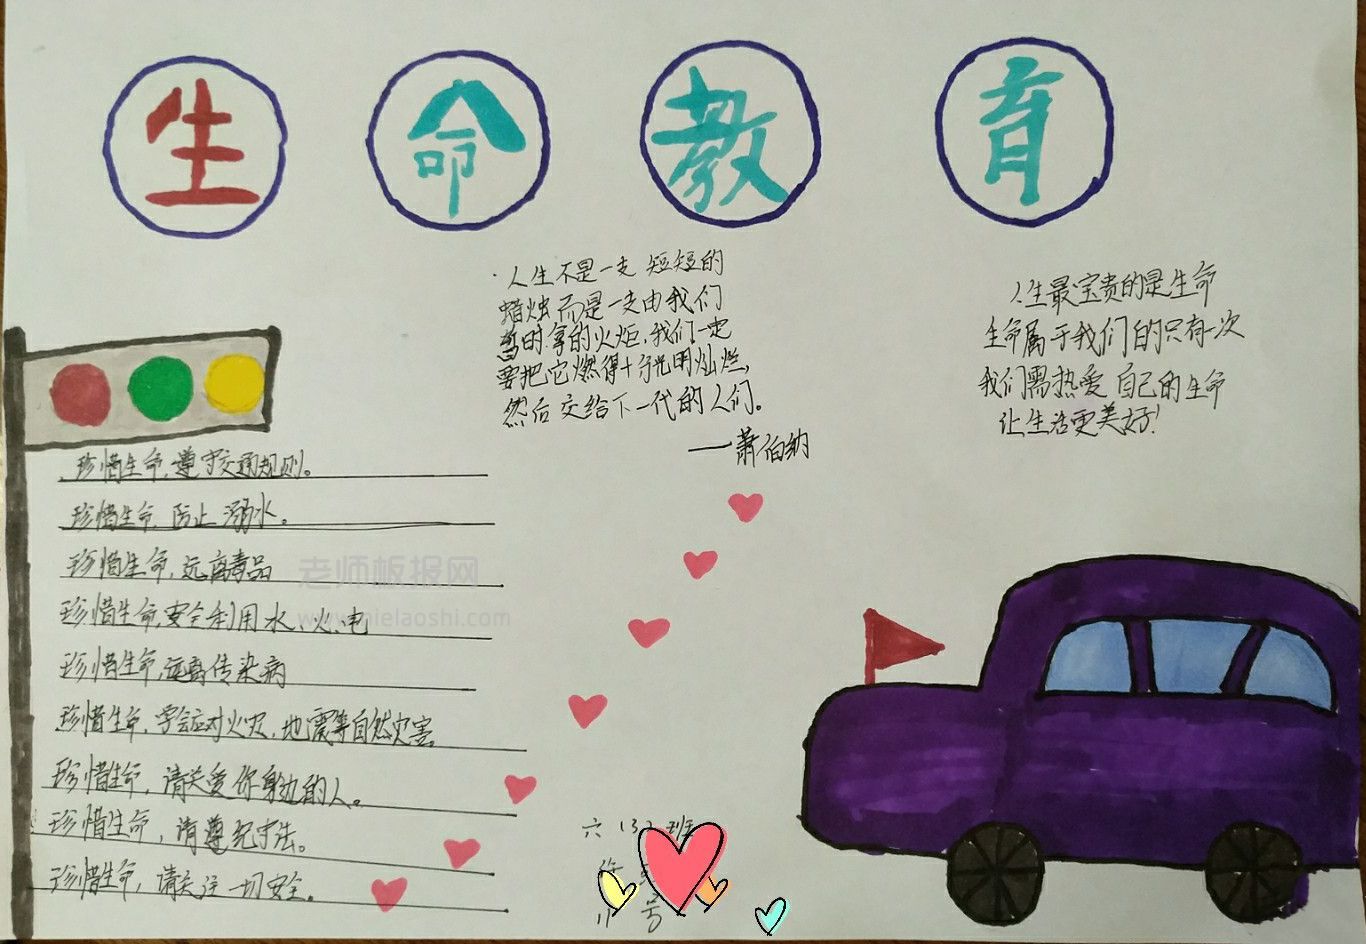 生命教育
人生不是一支短短的
蜡烛而是一支由我们
暂时拿的火炬,我们一定
要把它燃得十分光明灿烂,
然后交给下一代的人们。
——萧伯纳
人生最宝贵的是生命
生命属于我们的只有一次
我们需热爱自己的生命
让生活更美好!
珍惜生命,遵守交通规则。
珍惜生命,防止溺水。
珍惜生命,远离毒品
珍惜生命,安全利用水、火、电
珍惜生命,远离传染病
珍惜生命,学会应对火灾,地震等自然灾害。
珍惜生命,请关爱你身边的人。
珍惜生命,请遵纪守法。
珍惜生命,请关注一切安全。
老师板报网
六 班
号